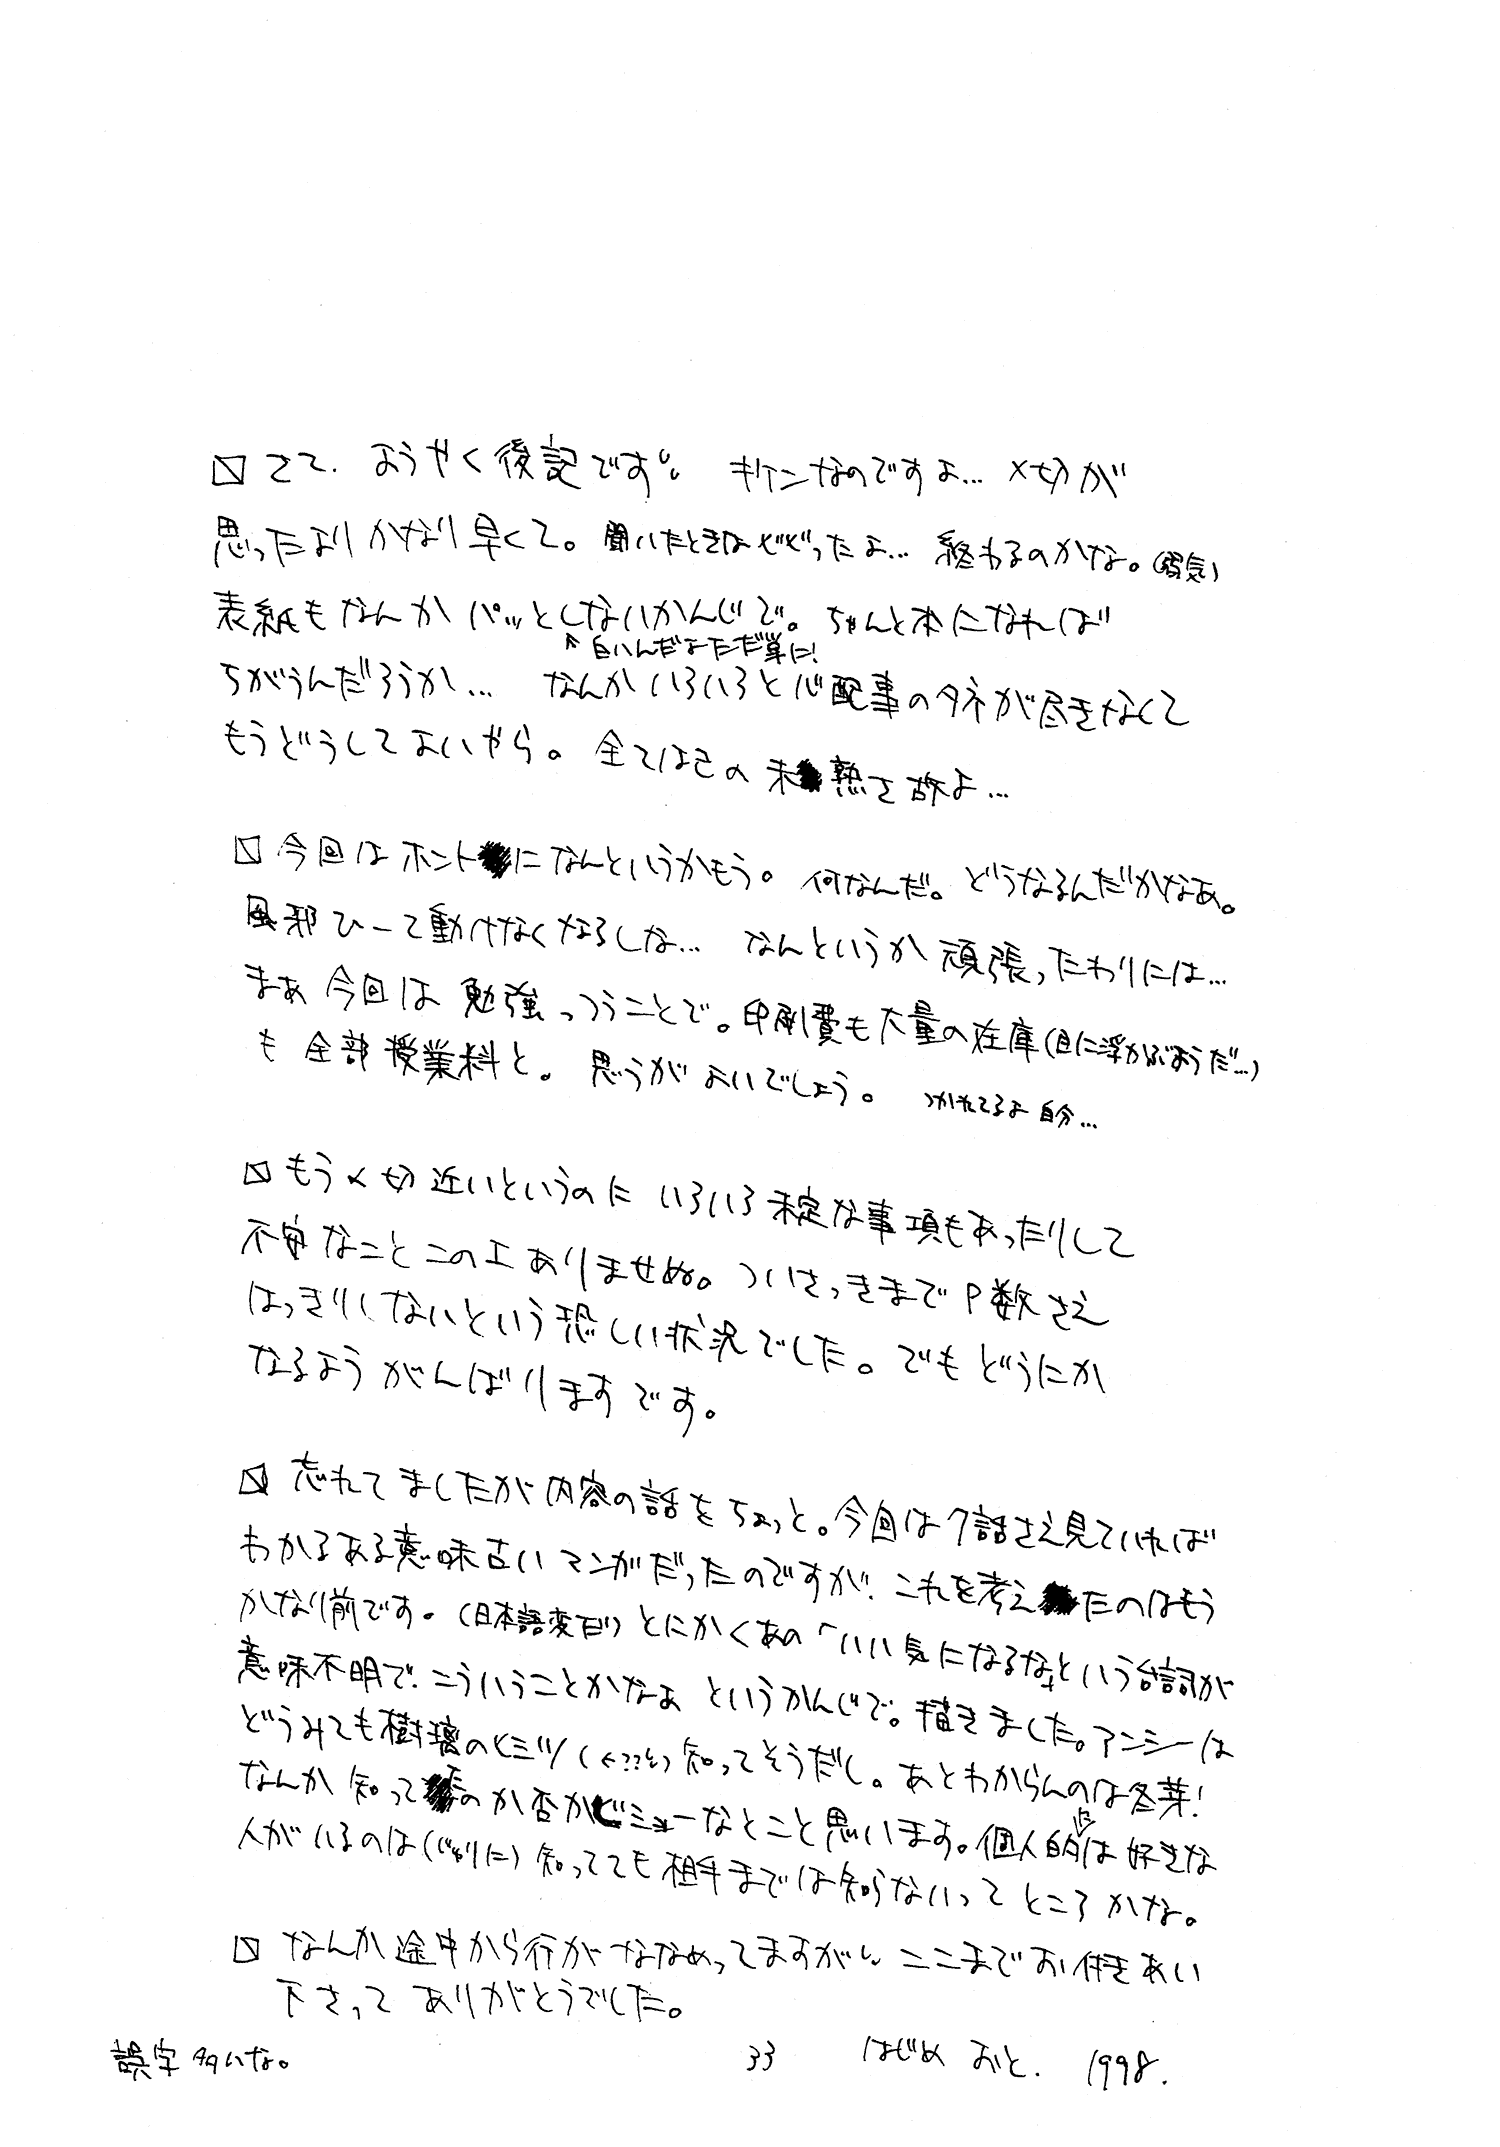 さて、ようやく後記です。 キケンなのですよ… 〆切が
思ったよりかなり早くて。聞いたときはビビったよ… 終わるのかな。(弱気)
表紙もなんかパッとしないかんじで。ちゃんと本になれば
↑白いんだよただ単に!
ちがうんだろうか… なんかいろいろと心配事のタネが尽きなくて
もうどうしてよいやら。全ては己の未熟さ故よ…
今回はホントになんというかもう。何なんだ。どうなるんだかなあ。
風邪ひーて動けなくなるしな… なんというか頑張ったわりには…
まあ今回は勉強っつうことで。印刷費も大量の在庫(目に浮かぶようだ…)
も全部授業料と。思うがよいでしょう。 つかれてるよ自分…
もう〆切近いというのにいろいろ未定な事項もあったりして
不安なことこの上ありませぬ。ついさっきまでP数さえ
はっきりしないという恐しい状況でした。でもどうにか
なるようがんばりますです。
忘れてましたが内容の話をちょっと。今回は7話さえ見ていれば
わかるある意味古いマンガだったのですが、これを考えたのはもう
かなり前です。(日本語変だ!)とにかくあの「いい気になるな」という台詞が
意味不明で、こういうことかなぁというかんじで。描きました。アンシーは
どうみても樹璃のヒミツ(←???)知ってそうだし。あとわからんのは冬芽!
なんか知ってたのか否かビミョーなとこと思います。個人的には好きな
人がいるのは(じゅりに)知ってても相手までは知らないってところかな。
なんか途中から行がななめってますが、ここまでお付きあい
下さってありがとうでした。
誤字多いな。 33 はじめ おと. 1998.